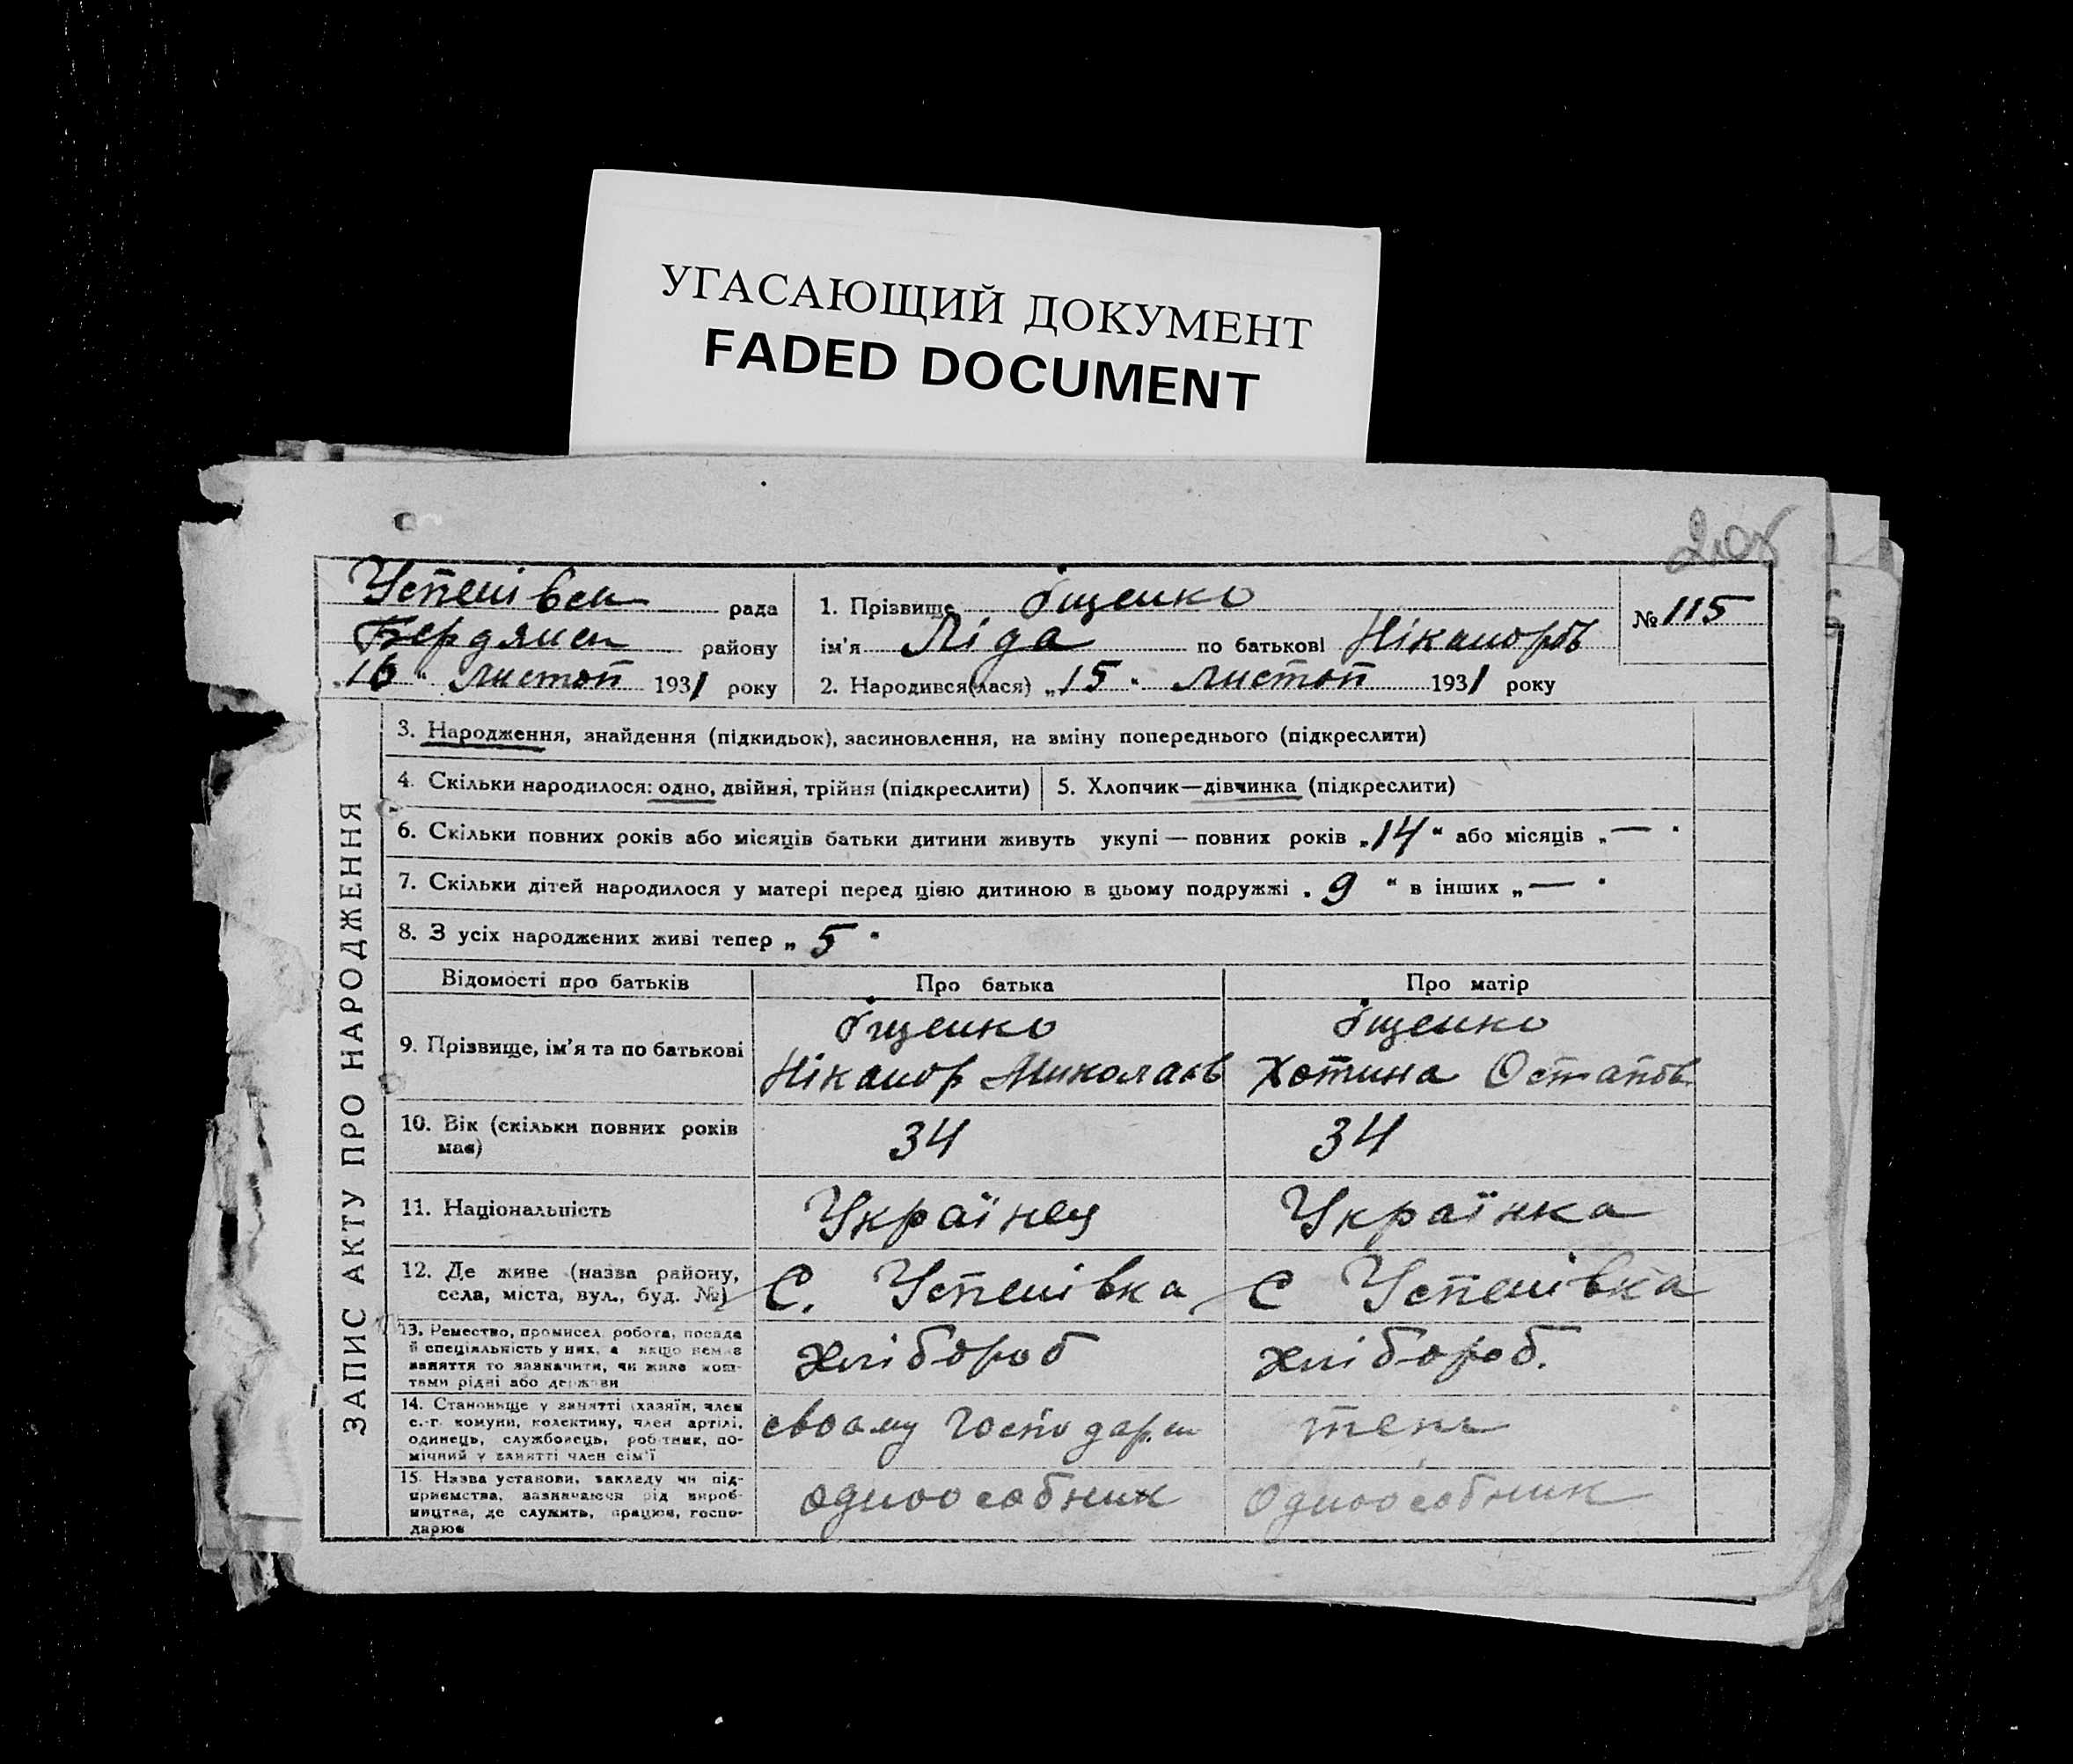 УГАСАЮЩИЙ ДОКУМЕНТ
FADED DOCUMENT
Успенівськ рада
Бердянськ району
„16“ листоп 1931 року
1. Прізвище Іщенко
ім'я Ліда по батьковіНіканорів
№ 115
2. Народився(лася) „15“ листоп 1931 року
ЗАПИС АКТУ ПРО НАРОДЖЕННЯ
3. Народження, знайдення (підкидьок), засиновлення, на зміну попереднього (підкреслити)
4. Скільки народилося: одно, двійня, трійня (підкреслити)
5. Хлопчик—дівчинка (підкреслити)
6. Скільки повних років або місяців батьки дитини живуть укупі — повних років „14“ або місяців „—“
7. Скільки дітей народилося у матері перед цією дитиною в цьому подружжі „9“ в інших „—“
8. З усіх народжених живі тепер „5“
Відомості про батьків Про батька Про матір
9. Прізвище, ім'я та по батькові
Іщенко
Ніканор Миколаєв
Іщенко
Хотина Остапов
10. Вік (скільки повних років
має)
34
34
11. Національність
Українец
Українка
12. Де живе (назва району,
села, міста, вул., буд. №)
С. Успенівка
С Успенівка
13. Ремество, промисел, робота, посада
й спеціяльність у них, а якщо немає
заняття то зазначити, чи живе кош-
тами рідні або держави
хлібороб
хлібороб.
14. Становище у занятті (хазяїн, член
с.-г. комуни, колективу, член артілі,
одинець, службовець, робітник, по-
мічний у занятті член сім'ї
своаму господар.
15. Назва установи, закладу чи під-
приємства, зазначаючи рід вироб-
ництва, де служить, працює, госпо-
дарює
одноособник
одноособник